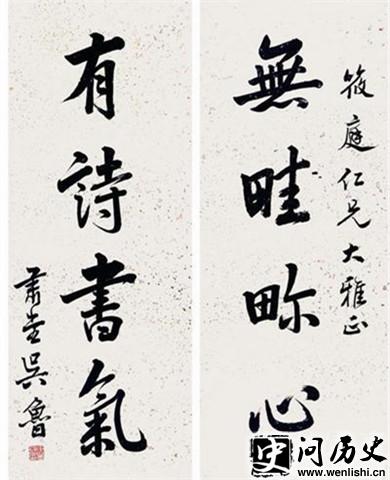 筱庭仁兄大雅正
無畦畛心
有詩書氣
肅堂吴魯
史问历史
www.wenlishi.cn